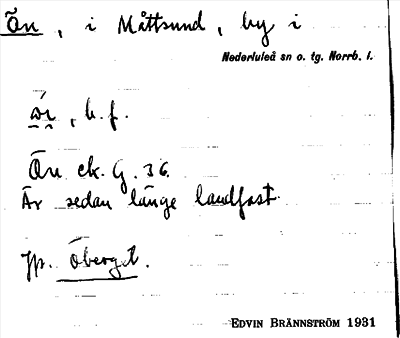 Ön, i Måttsund, by i
Nederluleå sn o. tg. Norrb. l.
b. f.
Ön ek. G. 36.
Är sedan länge landfast
Jfr. Öberget.
EDVIN BRÄNNSTRÖM 1931